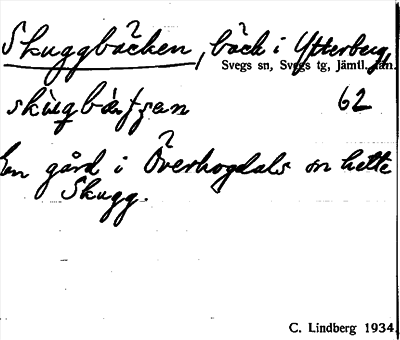 Skuggbäcken, bäck i Ytterberg,
Svegs sn, Svegs tg, Jämtl. län.
62
En gård i Överhogdals sn hette
Skugg.
C. Lindberg 1934.